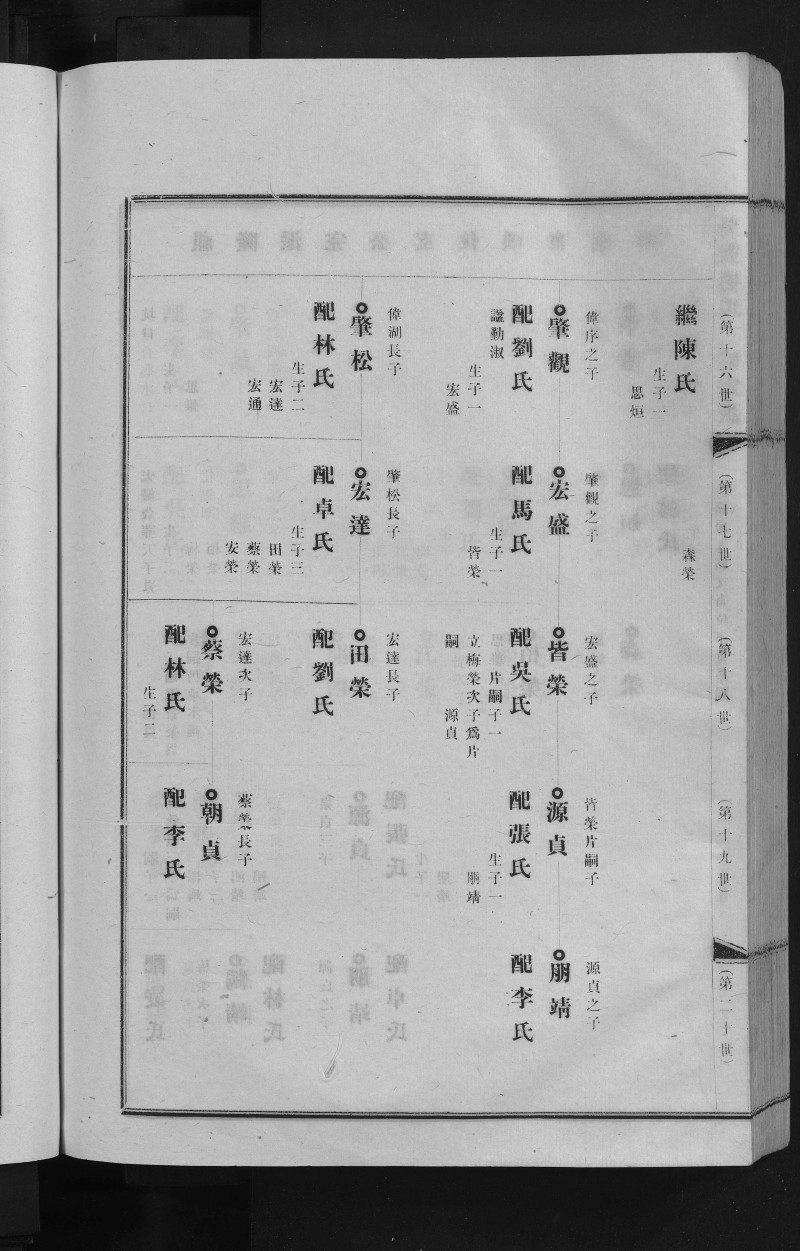 （第十六世）
（第十七世）
（第十八世）
（第十九世）
（第二十世）
繼陳氏
生子一
思烜
森榮
偉序之子
肇觀
配劉氏
謚勤淑
生子一
宏盛
肇觀之子
宏盛
配馬氏
生子一
皆榮
宏盛之子
皆榮
配吳氏
片嗣子一
立梅榮次子為片
嗣 源貞
皆榮片嗣子
源貞
配張氏
生子一
朋靖
源貞之子
朋靖
配李氏
偉湖長子
肇松
配林氏
生子二
宏達
宏通
肇松長子
宏達
配卓氏
生子三
田榮
蔡榮
安榮
宏達長子
田榮
配劉氏
宏達次子
蔡榮
配林氏
生子二
蔡榮長子
朝貞
配李氏